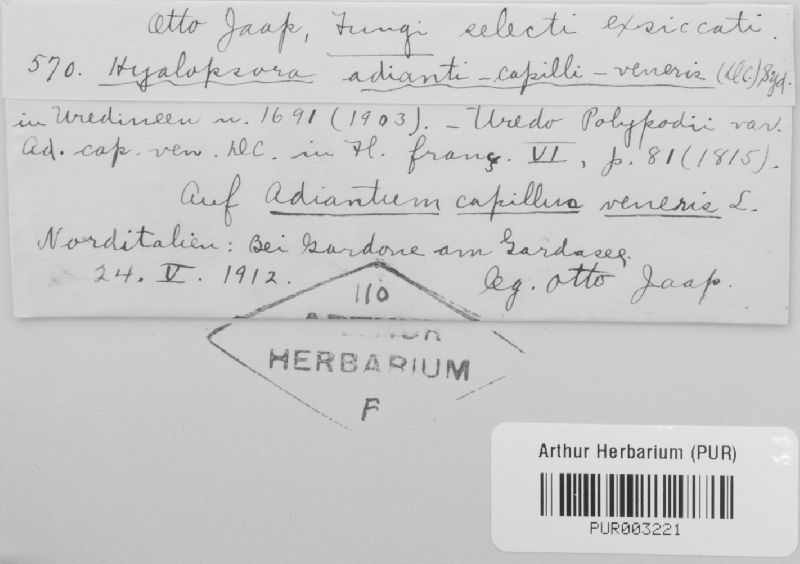 Otto Jaap, Fungi selecti exsiccati.
570. Hyalopsora adianti-capilli-veneris (DC.) Syd.
in Uredineen n. 1691 (1903). - Uredo Polypodii var.
Ad. cap. ven. DC. in Fl. franç. VI, p. 81 (1815).
Auf Adiantum capillus veneris L.
Norditalien: Bei Gardone am Gardasee,
24. V. 1912. leg. Otto Jaap.
110
ARTHUR
HERBARIUM
F
Arthur Herbarium (PUR)
PUR003221